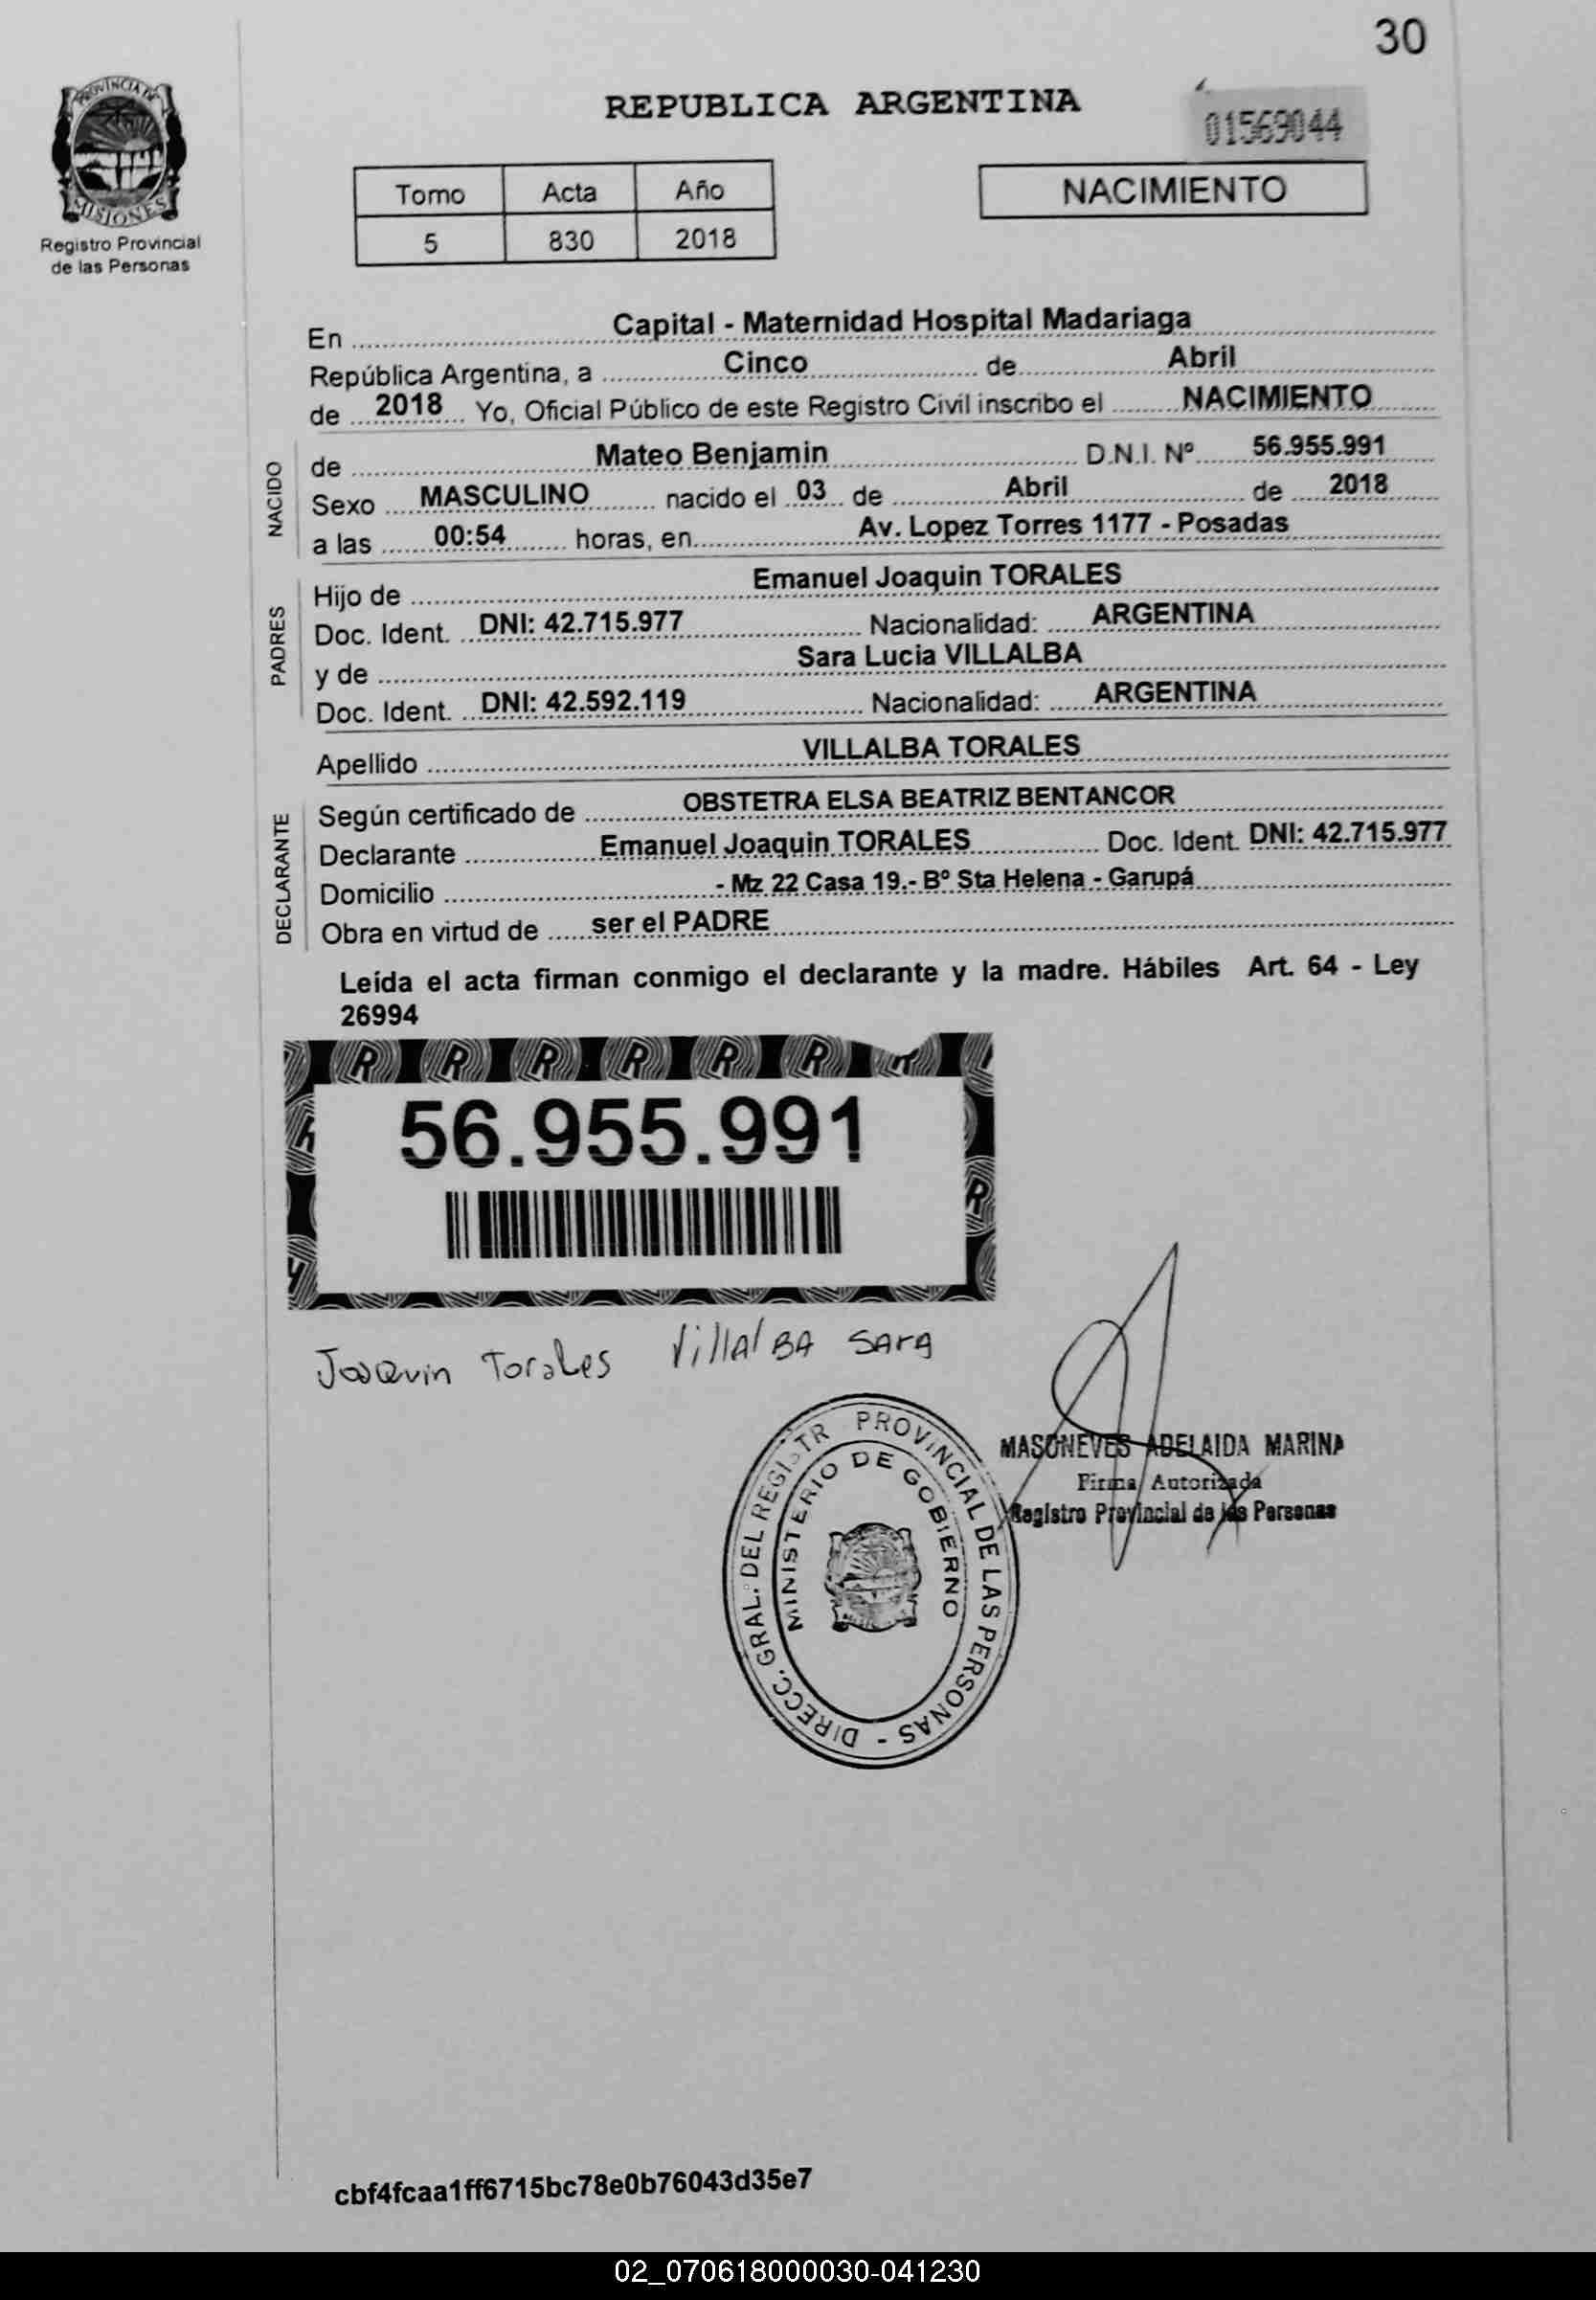 30
PROVINCIA DE
MISIONES
Registro Provincial
de las Personas
REPUBLICA ARGENTINA
01569044
Tomo Acta Año
5 830 2018
NACIMIENTO
En Capital - Maternidad Hospital Madariaga
República Argentina, a Cinco de Abril
de 2018 Yo, Oficial Público de este Registro Civil inscribo el NACIMIENTO
NACIDO
de Mateo Benjamin D.N.I. Nº 56.955.991
Sexo MASCULINO nacido el 03 de Abril de 2018
a las 00:54 horas, en Av. Lopez Torres 1177 - Posadas
PADRES
Hijo de Emanuel Joaquin TORALES
Doc. Ident. DNI: 42.715.977 Nacionalidad: ARGENTINA
y de Sara Lucia VILLALBA
Doc. Ident. DNI: 42.592.119 Nacionalidad: ARGENTINA
Apellido VILLALBA TORALES
DECLARANTE
Según certificado de OBSTETRA ELSA BEATRIZ BENTANCOR
Declarante Emanuel Joaquin TORALES Doc. Ident. DNI: 42.715.977
Domicilio - Mz 22 Casa 19.- Bº Sta Helena - Garupá
Obra en virtud de ser el PADRE
Leída el acta firman conmigo el declarante y la madre. Hábiles Art. 64 - Ley
26994
R R R R R R
56.955.991
R
Joaquin Torales VillalBA SArA
DIRECC. GRAL. DEL REGISTR PROVINCIAL DE LAS PERSONAS -
MINISTERIO DE GOBIERNO
MASONEVES ADELAIDA MARINA
Firma Autorizada
Registro Provincial de las Personas
cbf4fcaa1ff6715bc78e0b76043d35e7
02_070618000030-041230